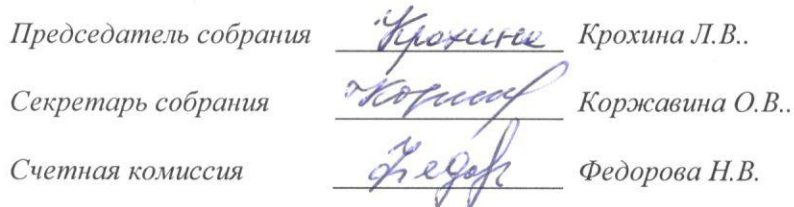 Председатель собрания Крохина Крохина Л.В..
Секретарь собрания Коржавина О.В..
Счетная комиссия Федор Федорова Н.В.